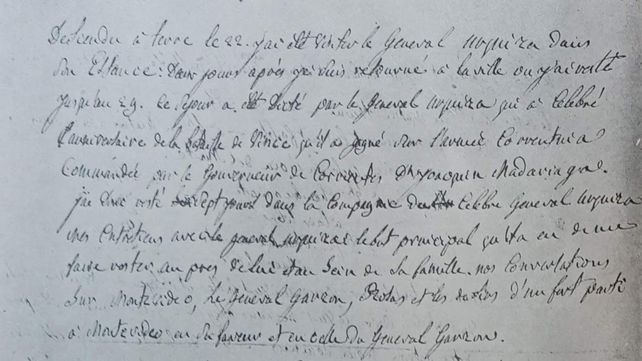 Descendu à terre le 22. j'ai été visiter le General Urquiza dans
son Estance: Deux jours après je suis retourné à la ville ou j'ai resté
jusqu'au 29. ce sejour a été dicté par le General Urquiza qui a célébré
l'anniversaire de la bataille de Vence qu'il a gagné sur l'armée Correntina
Commandée par le Gouverneur de Corrientes Dn Joaquin Madariaga.
j'ai donc resté sept jours dans la Compagnie du Célebre General Urquiza
mes Entretiens avec le general Urquiza le but principal qu'il a eu de me
faire rester au près de lui et au sein de sa famille. nos Conversations
sur Montevideo, le General Garzon, et les d'un fort parti
à Montevideo en sa faveur et en celle du General Garzon.